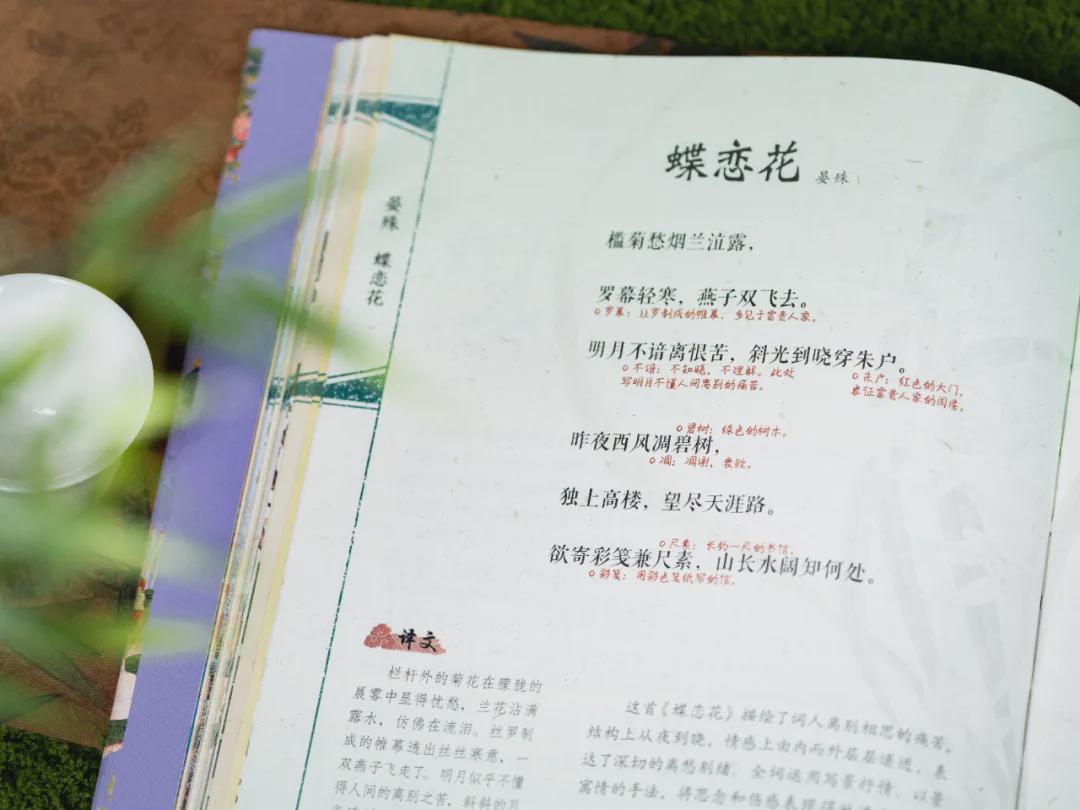 晏殊 蝶恋花
蝶恋花 晏殊
槛菊愁烟兰泣露，
罗幕轻寒，燕子双飞去。
○罗幕：丝罗制成的帷幕，多见于富贵人家。
明月不谙离恨苦，斜光到晓穿朱户。
○不谙：不知晓，不理解。此处
写明月不懂人间离别的痛苦。
○朱户：红色的大门，
象征富贵人家的闺房。
○碧树：绿色的树木。
昨夜西风凋碧树，
○凋：凋谢，衰败。
独上高楼，望尽天涯路。
○尺素：长约一尺的书信。
欲寄彩笺兼尺素，山长水阔知何处。
○彩笺：用彩色笺纸写的信。
译文
栏杆外的菊花在朦胧的
晨雾中显得忧愁，兰花沾满
露水，仿佛在流泪。丝罗制
成的帷幕透出丝丝寒意，一
双燕子飞走了。明月似乎不懂
得人间的离别之苦，斜斜的月
这首《蝶恋花》描绘了词人离别相思的痛苦，
结构上从夜到晓，情感上由内而外层层递进，表
达了深切的离愁别绪。全词运用写景抒情、以景
寓情的手法，将思念和伤感表现得